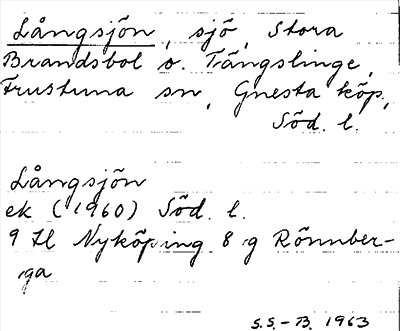 Långsjön, sjö, Stora
Brandsbol o. Tängslinge,
Frustuna sn, Gnesta köp,
Söd. l.
Långsjön
ek (1960) Söd. l.
9 H Nyköping 8 g Rönnber-
ga
S.S.-B. 1963